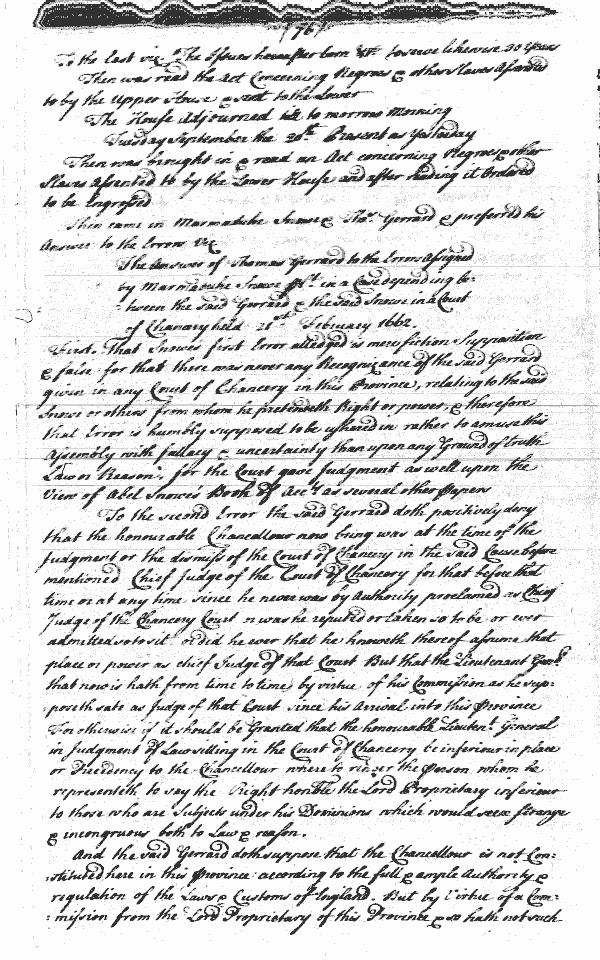 (76)
To the last viz.t The Issues hereafter born to serve likewise 30 years
Then was read the Act Concerning Negroes & other Slaves Assented
to by the Upper House & sent to the Lower
The House Adjourned till to morrow Morning
Tuesday September the 20th Present as Yesterday
Then was brought in & read an Act concerning Negroes & other
Slaves Assented to by the Lower House and after reading it Ordered
to be Engrossed
Then came in Marmaduke Snowe & Tho.s Gerrard & preferred his
Answer to the Errors viz
The Answer of Thomas Gerrard to the Errors Assigned
by Marmaduke Snowe pl.t in a Case depending be-
tween the said Gerrard & the said Snowe in a Court
of Chancery held 21st February 1662.
First. That Snowes first Error alledged is mere fiction Supposition
& false for that there was never any Recognizance of the said Gerrard
given in any Court of Chancery in this Province, relating to the said
Snow or others from whom he pretendeth Right or power, & therefore
that Error is humbly supposed to be ushered in rather to amuse this
Assembly with fallacy & uncertainty than upon any Ground of truth
Law or Reason, for the Court gave Judgment as well upon the
View of Abel Snowes Book of Acc.ts as several other Papers
To the second Error the said Gerrard doth positively deny
that the honourable Chancellour now being was at the time of the
Judgment or the dismiss of the Court of Chancery in the said Cause before
mentioned Chief Judge of the Court of Chancery for that before that
time or at any time since he never was by Authority proclaimed as Chief
Judge of the Chancery Court n was he reputed or taken so to be or ever
admitted so to sit or did he ever that he knoweth thereof assume that
place or power as chief Judge of that Court But that the Lieutenant Gen.l
that now is hath from time to time by virtue of his Commission as he sup-
poseth sate as Judge of that Court since his Arrival into this Province
For otherwise if it should be Granted that the honourable Lieuten.t General
in Judgment of Law sitting in the Court of Chancery be inferiour in place
or Precedency to the Chancellour where to the Person whom he
representeth, to say the Right honble the Lord Proprietary inferiour
to those who are Subjects under his Dominions which would seem strange
& incongruous both to Law & reason.
And the said Gerrard doth suppose that the Chancellour is not Con-
stituted here in this Province according to the full & ample Authority &
regulation of the Laws & Customs of England. But by Virtue of a Com-
mission from the Lord Proprietary of this Province & so hath not such